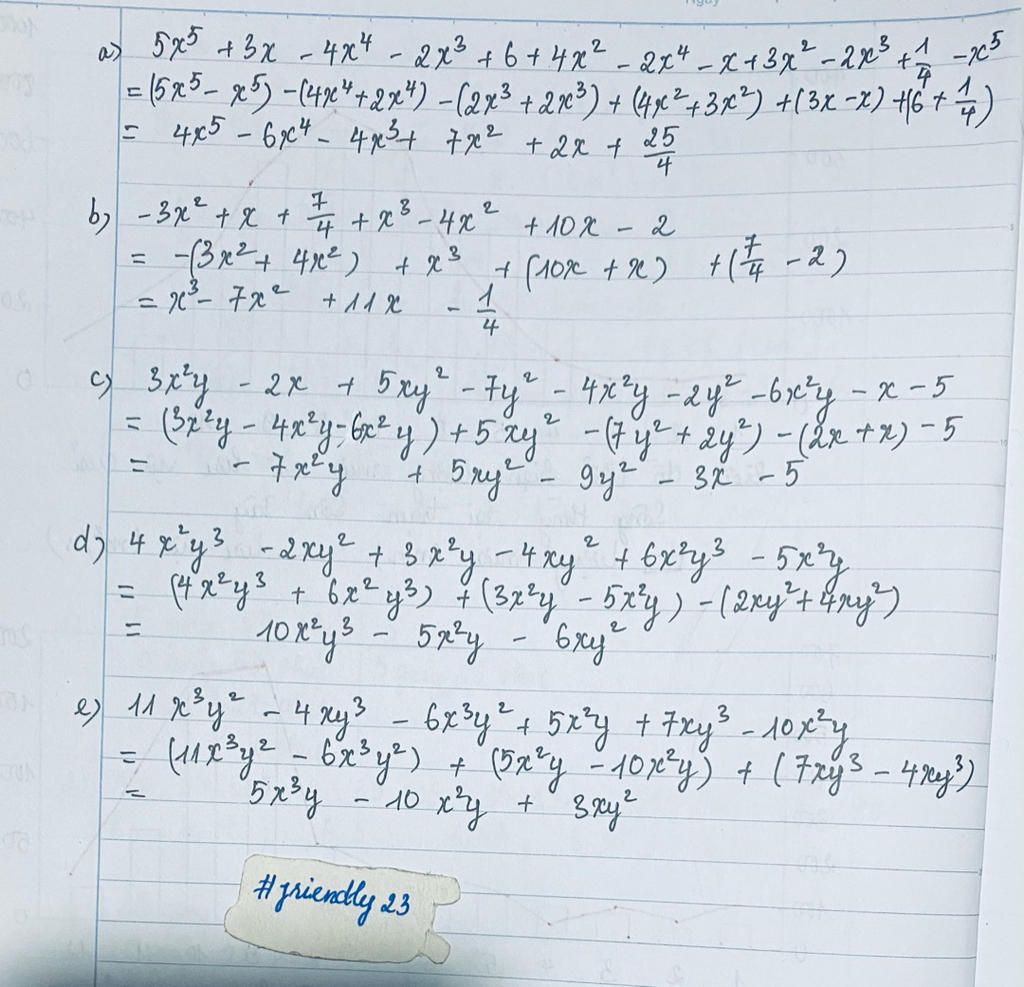 a) 5x⁵ + 3x - 4x⁴ - 2x³ + 6 + 4x² - 2x⁴ - x + 3x² - 2x³ + 1/4 - x⁵
= (5x⁵ - x⁵) - (4x⁴ + 2x⁴) - (2x³ + 2x³) + (4x² + 3x²) + (3x - x) + (6 + 1/4)
= 4x⁵ - 6x⁴ - 4x³ + 7x² + 2x + 25/4
b) -3x² + x + 7/4 + x³ - 4x² + 10x - 2
= -(3x² + 4x²) + x³ + (10x + x) + (7/4 - 2)
= x³ - 7x² + 11x - 1/4
c) 3x²y - 2x + 5xy² - 7y² - 4x²y - 2y² - 6x²y - x - 5
= (3x²y - 4x²y - 6x²y) + 5xy² - (7y² + 2y²) - (2x + x) - 5
= - 7x²y + 5xy² - 9y² - 3x - 5
d) 4x²y³ - 2xy² + 3x²y - 4xy² + 6x²y³ - 5x²y
= (4x²y³ + 6x²y³) + (3x²y - 5x²y) - (2xy² + 4xy²)
= 10x²y³ - 5x²y - 6xy²
e) 11x³y² - 4xy³ - 6x³y² + 5x²y + 7xy³ - 10x²y
= (11x³y² - 6x³y²) + (5x²y - 10x²y) + (7xy³ - 4xy³)
= 5x³y - 10x²y + 3xy²
#friendly 23